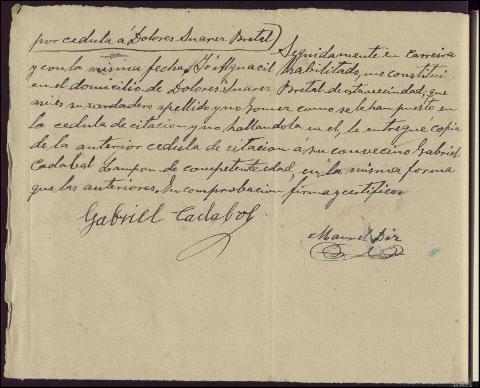 por cedula á Dolores Suarez Bretal) Seguidamente en Carreira
y con la misma fecha, Yó Alguacil habilitado, me constitui
en el domicilio de Dolores Suarez Bretal de esta vecindad, que
asi es su verdadero apellido y no Gomez como se le han puesto en
la cedula de citacion y no hallandola en el, le entregue copia
de la anterior cedula de citacion a su convecino Gabriel
Cadabal Lampon de competente edad, en la misma forma
que las anteriores. En comprobacion firma y certifico.
Gabriel Cadabal
Manuel Diz